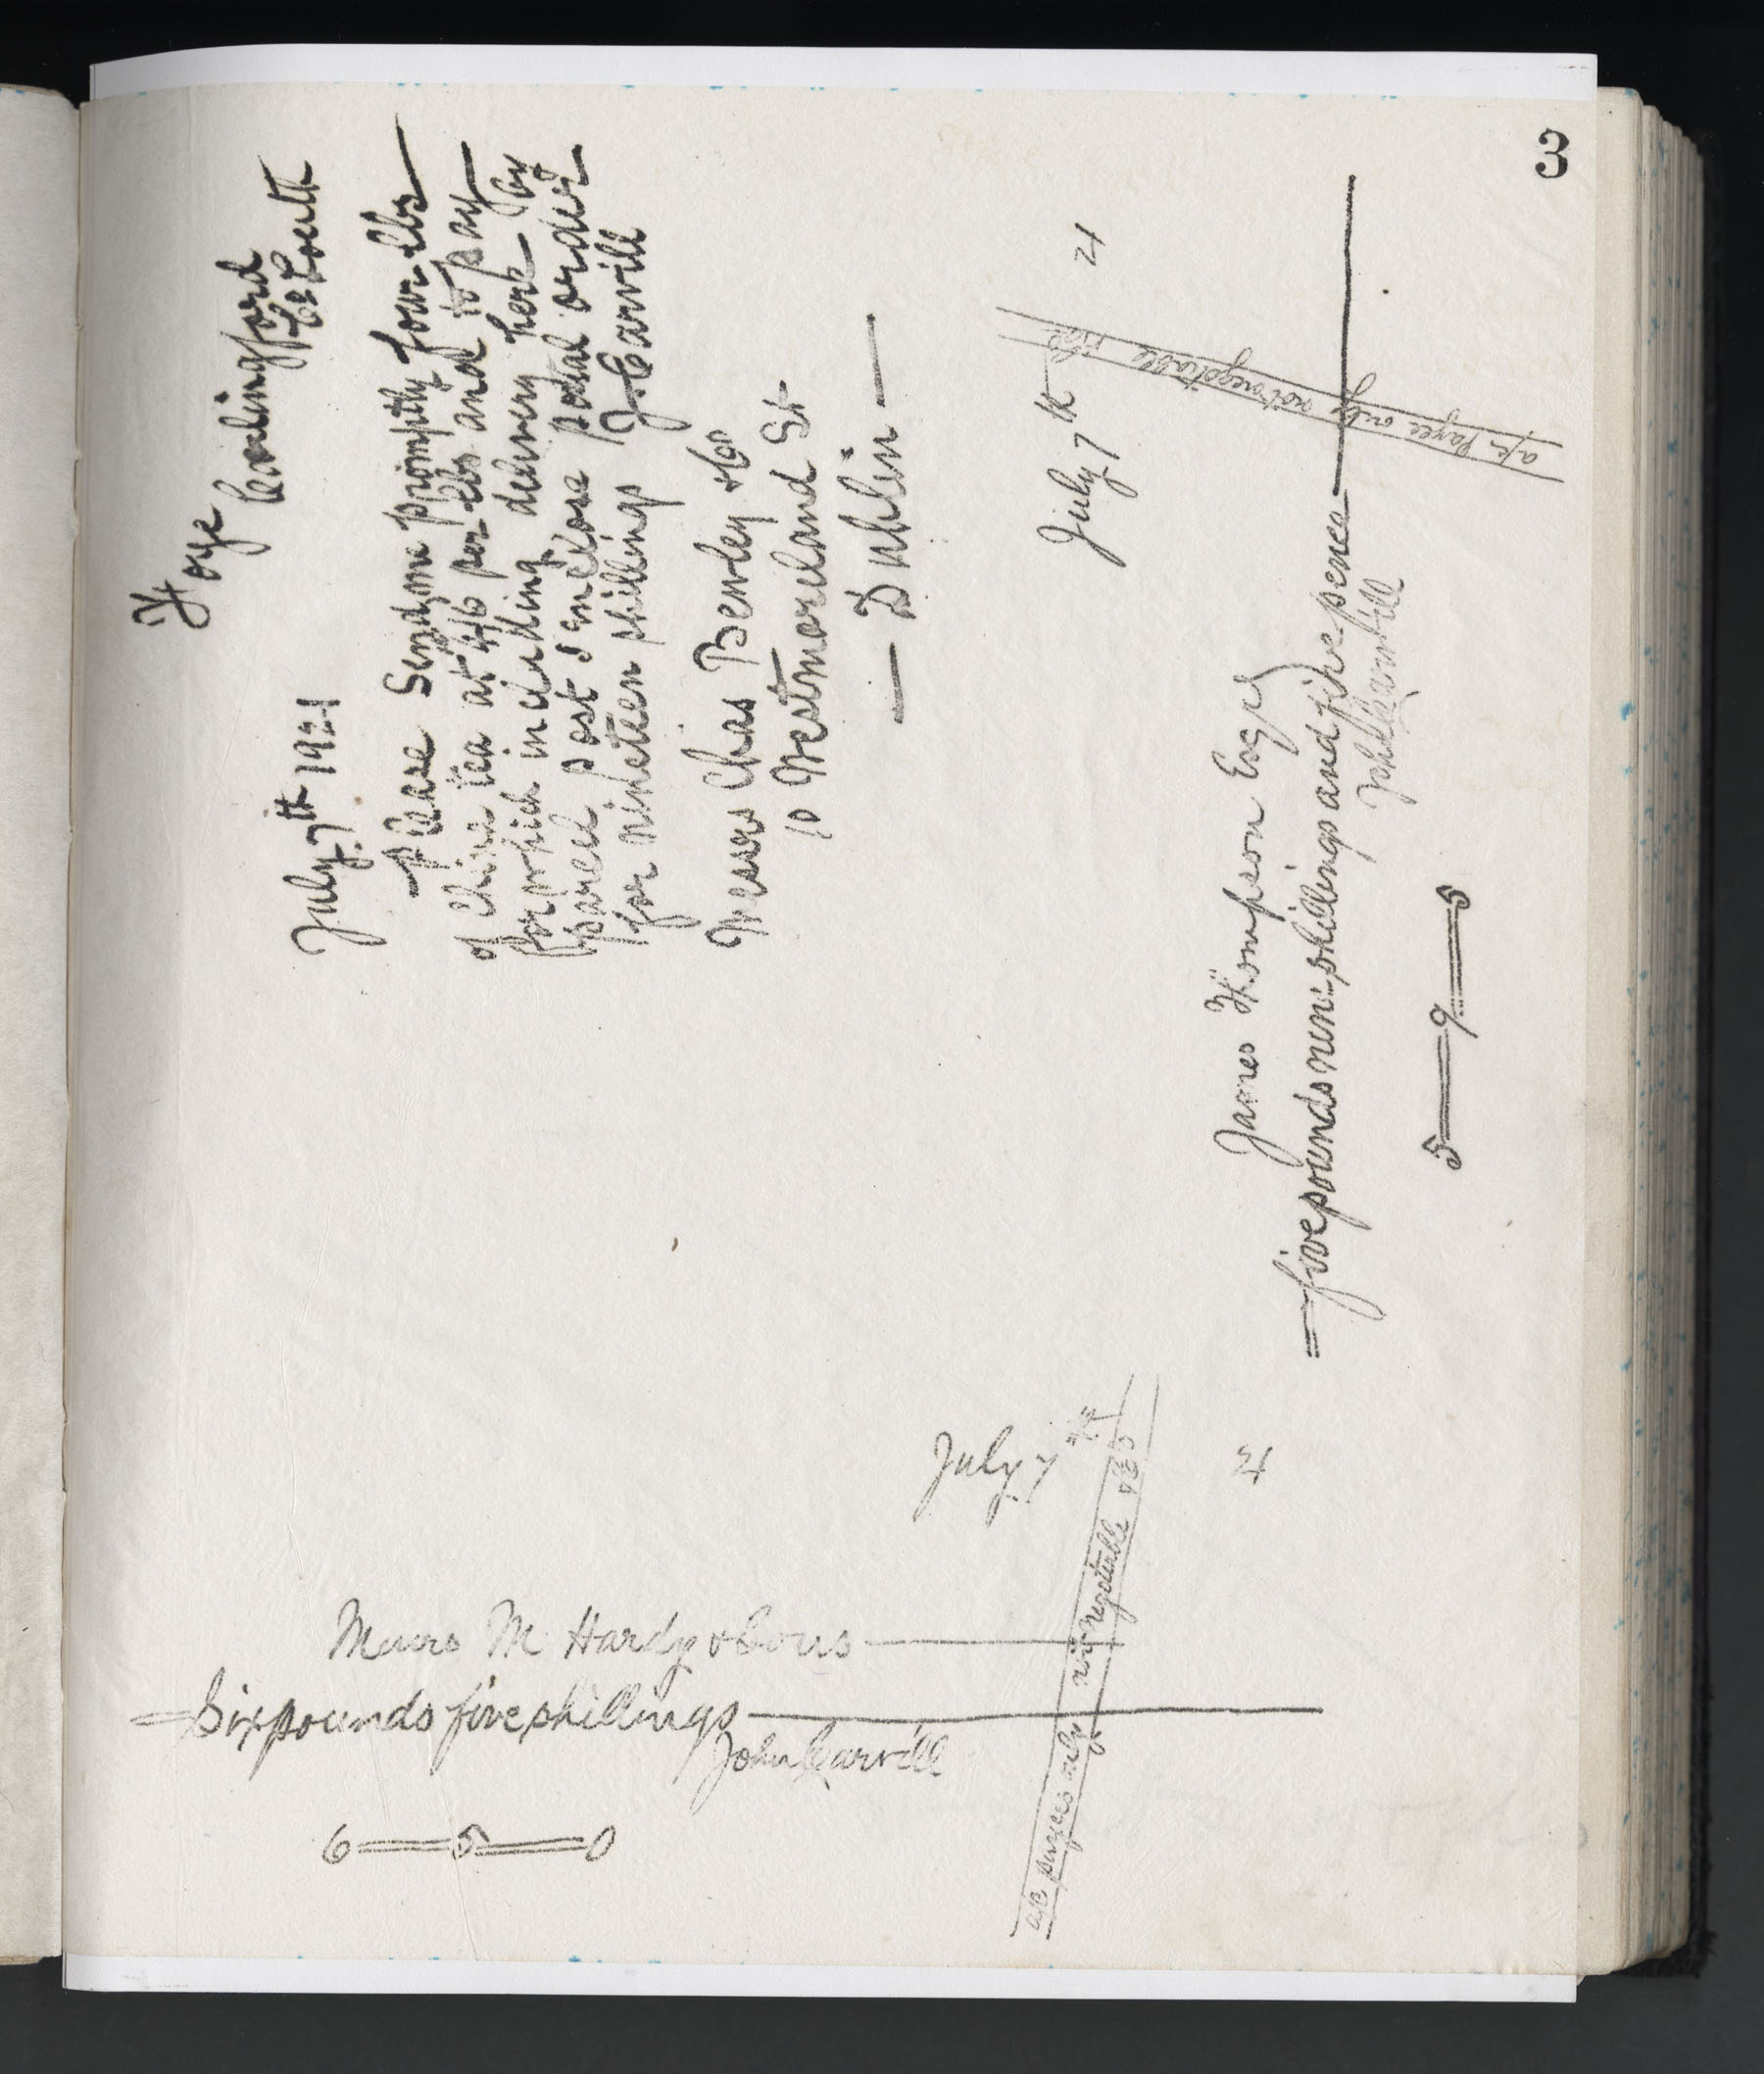 3
Foye
Carlingford
Co Louth
July 7th 1921
Please Send me promptly four lbs
of China tea at 4/6 per lbs and to pay
for which including delivery here by
parcel post I enclose postal order
for nineteen shillings J. Carvill
Messrs Chas Bewley & Co
10 Westmoreland St
Dublin
July 7th 21
a/c Payee only not negotiable & Co
James Thompson Esqr
five pounds nine shillings and five pence
John Carvill
5 = 9 = 5
July 7th
21
a/c payees only not negotiable & Co
Messrs M Hardy & Cous
Six pounds five shillings
John Carvill
6 = 5 = 0